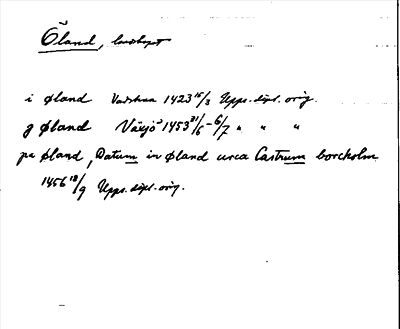 Öland, landskapet
i Øland Vadstena 1423 15/3 Upps. dipl. orig.
g Øland Växjö 1453 31/5 - 6/7 " " "
pa Øland, Datum in Øland circa Castrum borcholm
1456 18/9 Upps. dipl. orig.